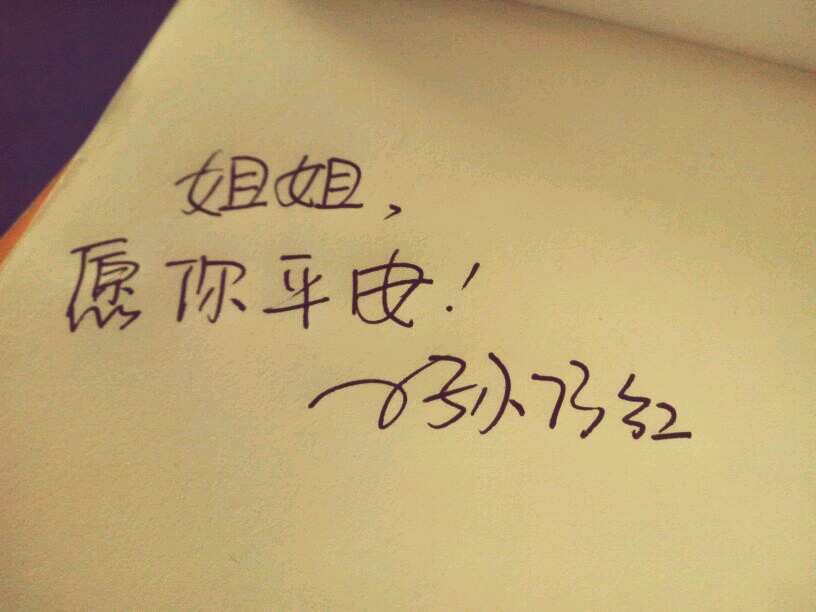 姐姐，
愿你平安！
孙乃红